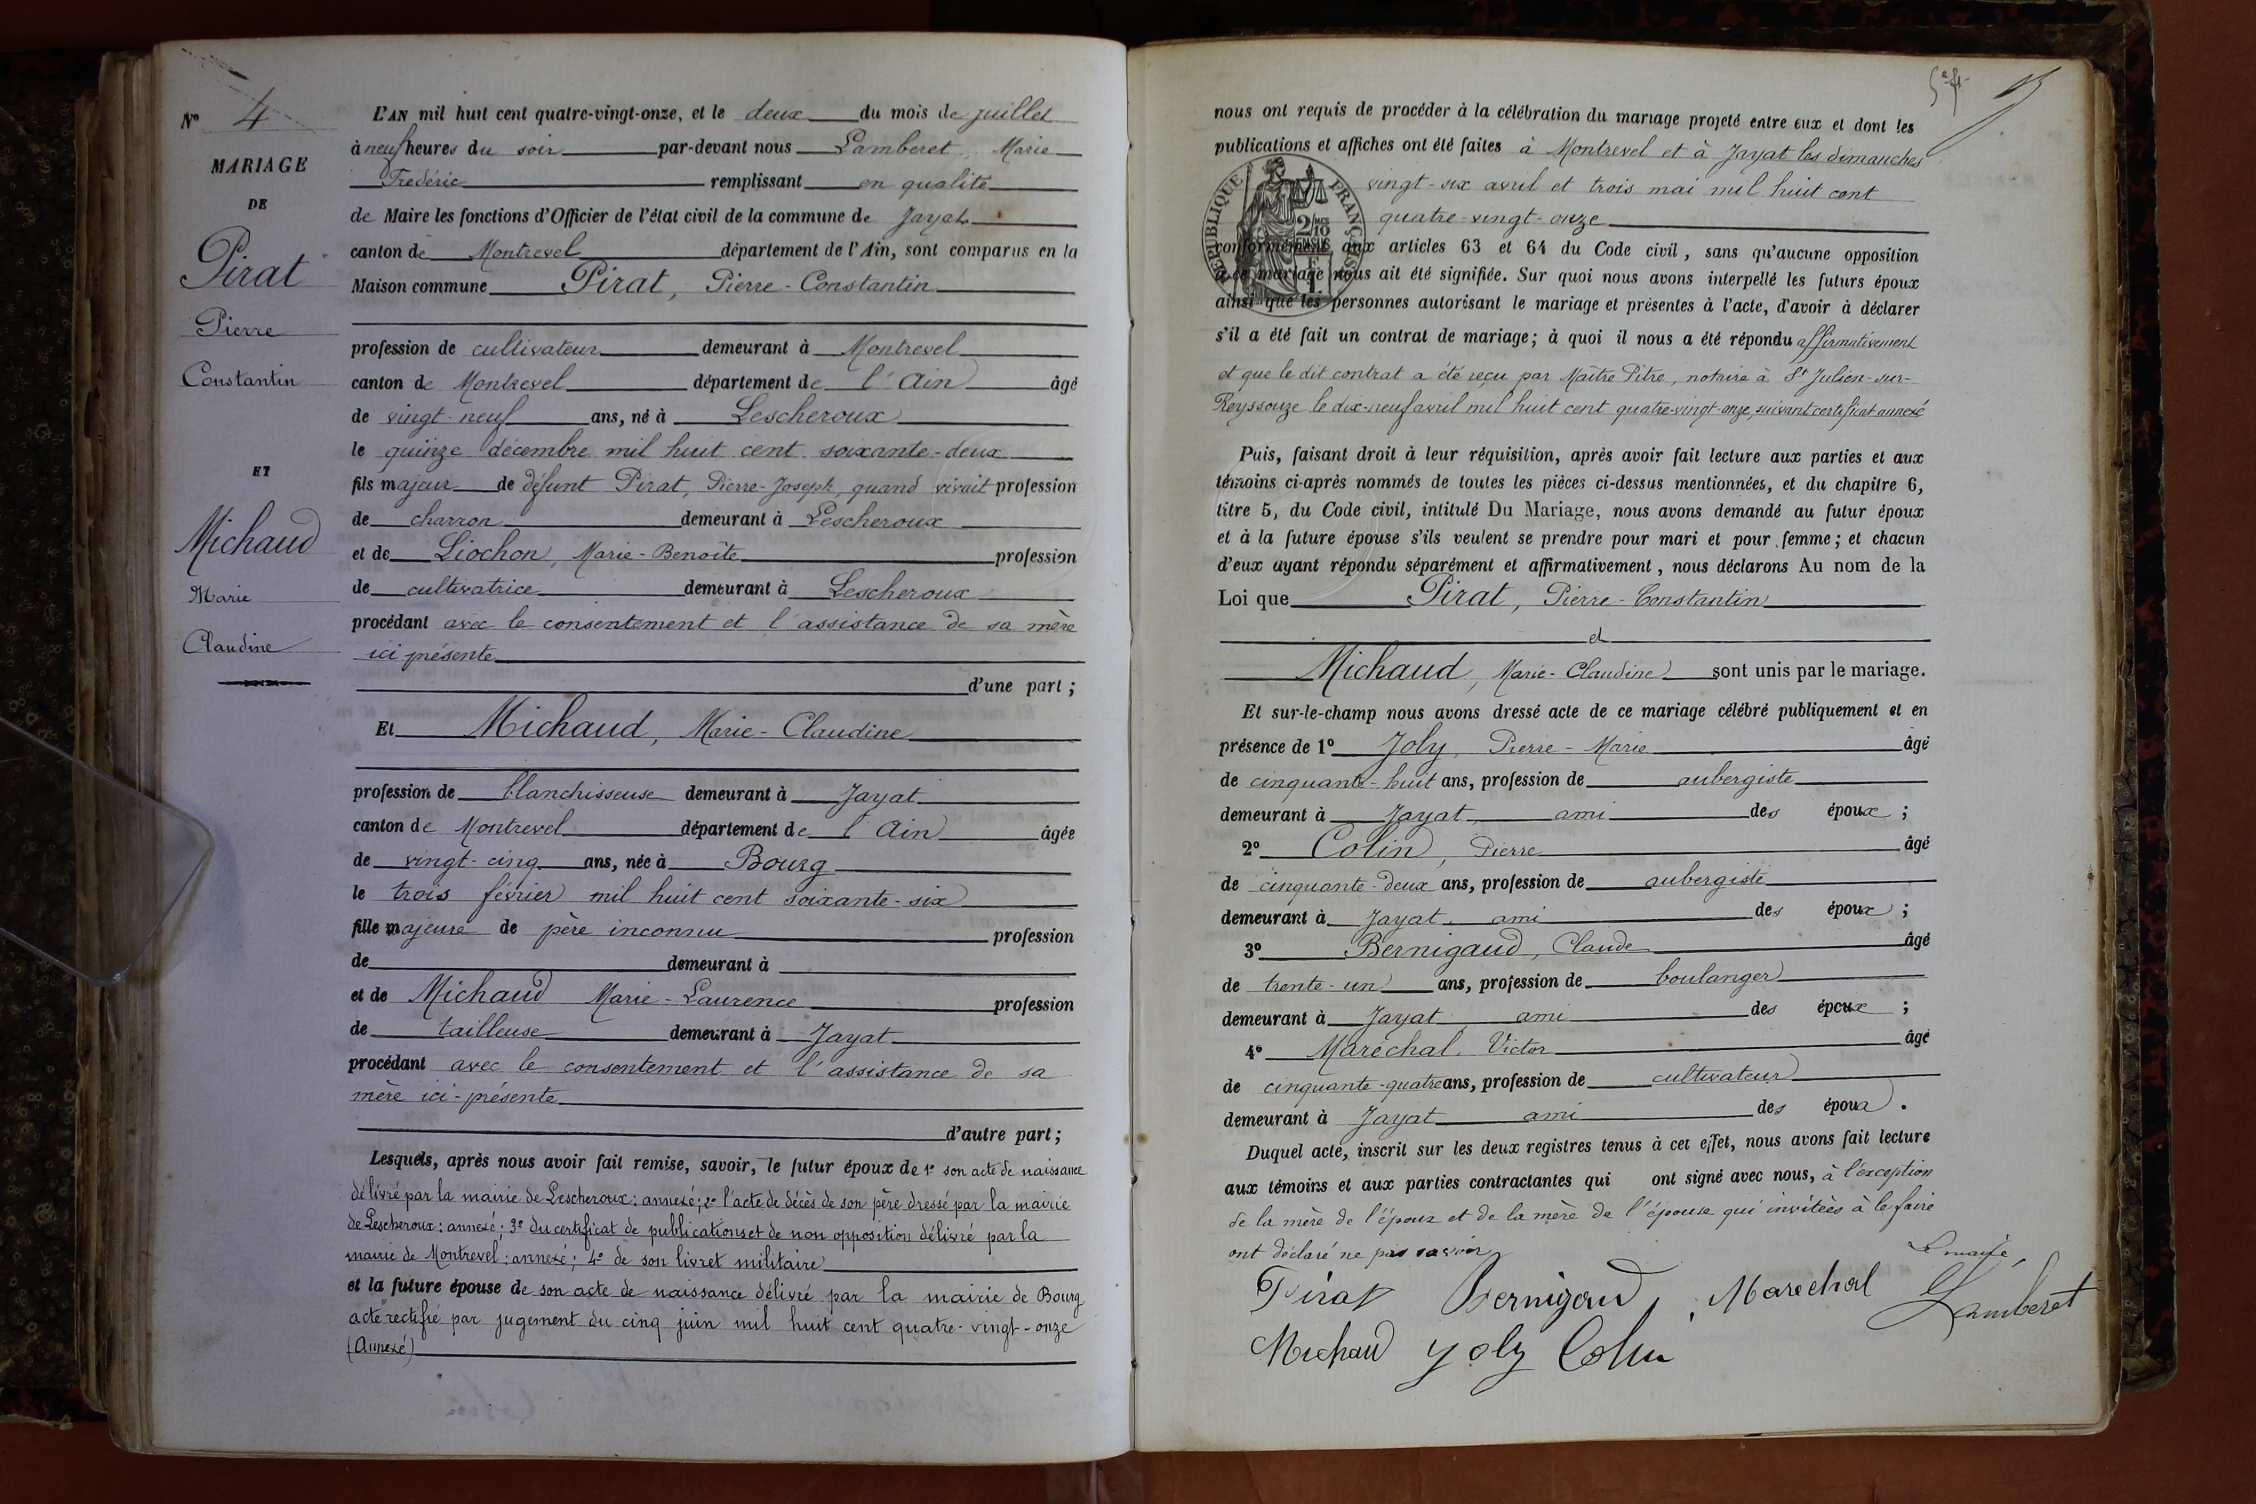 Nº 4
MARIAGE
DE
Pirat
Pierre
Constantin
ET
Michaud
Marie
Claudine
L'AN mil huit cent quatre-vingt-onze, et le deux du mois de juillet
à neuf heures du soir par-devant nous Lamberet, Marie
Frédéric remplissant en qualité
de Maire les fonctions d'Officier de l'état civil de la commune de Jayat
canton de Montrevel département de l'Ain, sont comparus en la
Maison commune Pirat, Pierre-Constantin
profession de cultivateur demeurant à Montrevel
canton de Montrevel département de l'Ain âgé
de vingt-neuf ans, né à Lescheroux
le quinze décembre mil huit cent soixante-deux
fils majeur de défunt Pirat, Pierre-Joseph, quand vivait profession
de charron demeurant à Lescheroux
et de Liochon, Marie-Benoîte profession
de cultivatrice demeurant à Lescheroux
procédant avec le consentement et l'assistance de sa mère
ici présente
d'une part ;
Et Michaud, Marie-Claudine
profession de blanchisseuse demeurant à Jayat
canton de Montrevel département de l'Ain âgée
de vingt-cinq ans, née à Bourg
le trois février mil huit cent soixante-six
fille majeure de père inconnu profession
de demeurant à
et de Michaud Marie-Laurence profession
de tailleuse demeurant à Jayat
procédant avec le consentement et l'assistance de sa
mère ici-présente
d'autre part ;
Lesquels, après nous avoir fait remise, savoir, le futur époux de 1º son acte de naissance
délivré par la mairie de Lescheroux : annexé ; 2º l'acte de décès de son père dressé par la mairie
de Lescheroux : annexé ; 3º du certificat de publications et de non opposition délivré par la
mairie de Montrevel : annexé ; 4º de son livret militaire
et la future épouse de son acte de naissance délivré par la mairie de Bourg
acte rectifié par jugement du cinq juin mil huit cent quatre-vingt-onze
(Annexé)
nous ont requis de procéder à la célébration du mariage projeté entre eux et dont les
publications et affiches ont été faites à Montrevel et à Jayat les dimanches
vingt-six avril et trois mai mil huit cent
quatre-vingt-onze
RÉPUBLIQUE FRANÇAISE
2/10
conformément aux articles 63 et 64 du Code civil, sans qu'aucune opposition
à ce mariage nous ait été signifiée. Sur quoi nous avons interpellé les futurs époux
ainsi que les personnes autorisant le mariage et présentes à l'acte, d'avoir à déclarer
s'il a été fait un contrat de mariage ; à quoi il nous a été répondu affirmativement
et que le dit contrat a été reçu par Maître Pitre, notaire à St Julien-sur-
Reyssouze le dix-neuf avril mil huit cent quatre-vingt-onze, suivant certificat annexé
Puis, faisant droit à leur réquisition, après avoir fait lecture aux parties et aux
témoins ci-après nommés de toutes les pièces ci-dessus mentionnées, et du chapitre 6,
titre 5, du Code civil, intitulé Du Mariage, nous avons demandé au futur époux
et à la future épouse s'ils veulent se prendre pour mari et pour femme ; et chacun
d'eux ayant répondu séparément et affirmativement, nous déclarons Au nom de la
Loi que Pirat, Pierre-Constantin
et
Michaud, Marie-Claudine sont unis par le mariage.
Et sur-le-champ nous avons dressé acte de ce mariage célébré publiquement et en
présence de 1º Joly, Pierre-Marie âgé
de cinquante-huit ans, profession de aubergiste
demeurant à Jayat, ami des époux ;
2º Colin, Pierre âgé
de cinquante-deux ans, profession de aubergiste
demeurant à Jayat, ami des époux ;
3º Bernigaud, Claude âgé
de trente-un ans, profession de boulanger
demeurant à Jayat ami des époux ;
4º Maréchal, Victor âgé
de cinquante-quatre ans, profession de cultivateur
demeurant à Jayat ami des époux .
Duquel acte, inscrit sur les deux registres tenus à cet effet, nous avons fait lecture
aux témoins et aux parties contractantes qui ont signé avec nous, à l'exception
de la mère de l'époux et de la mère de l'épouse qui invitées à le faire
ont déclaré ne pas savoir
Le maire
Pirat Bernigaud Marechal Lamberet
Michaud Joly Colin